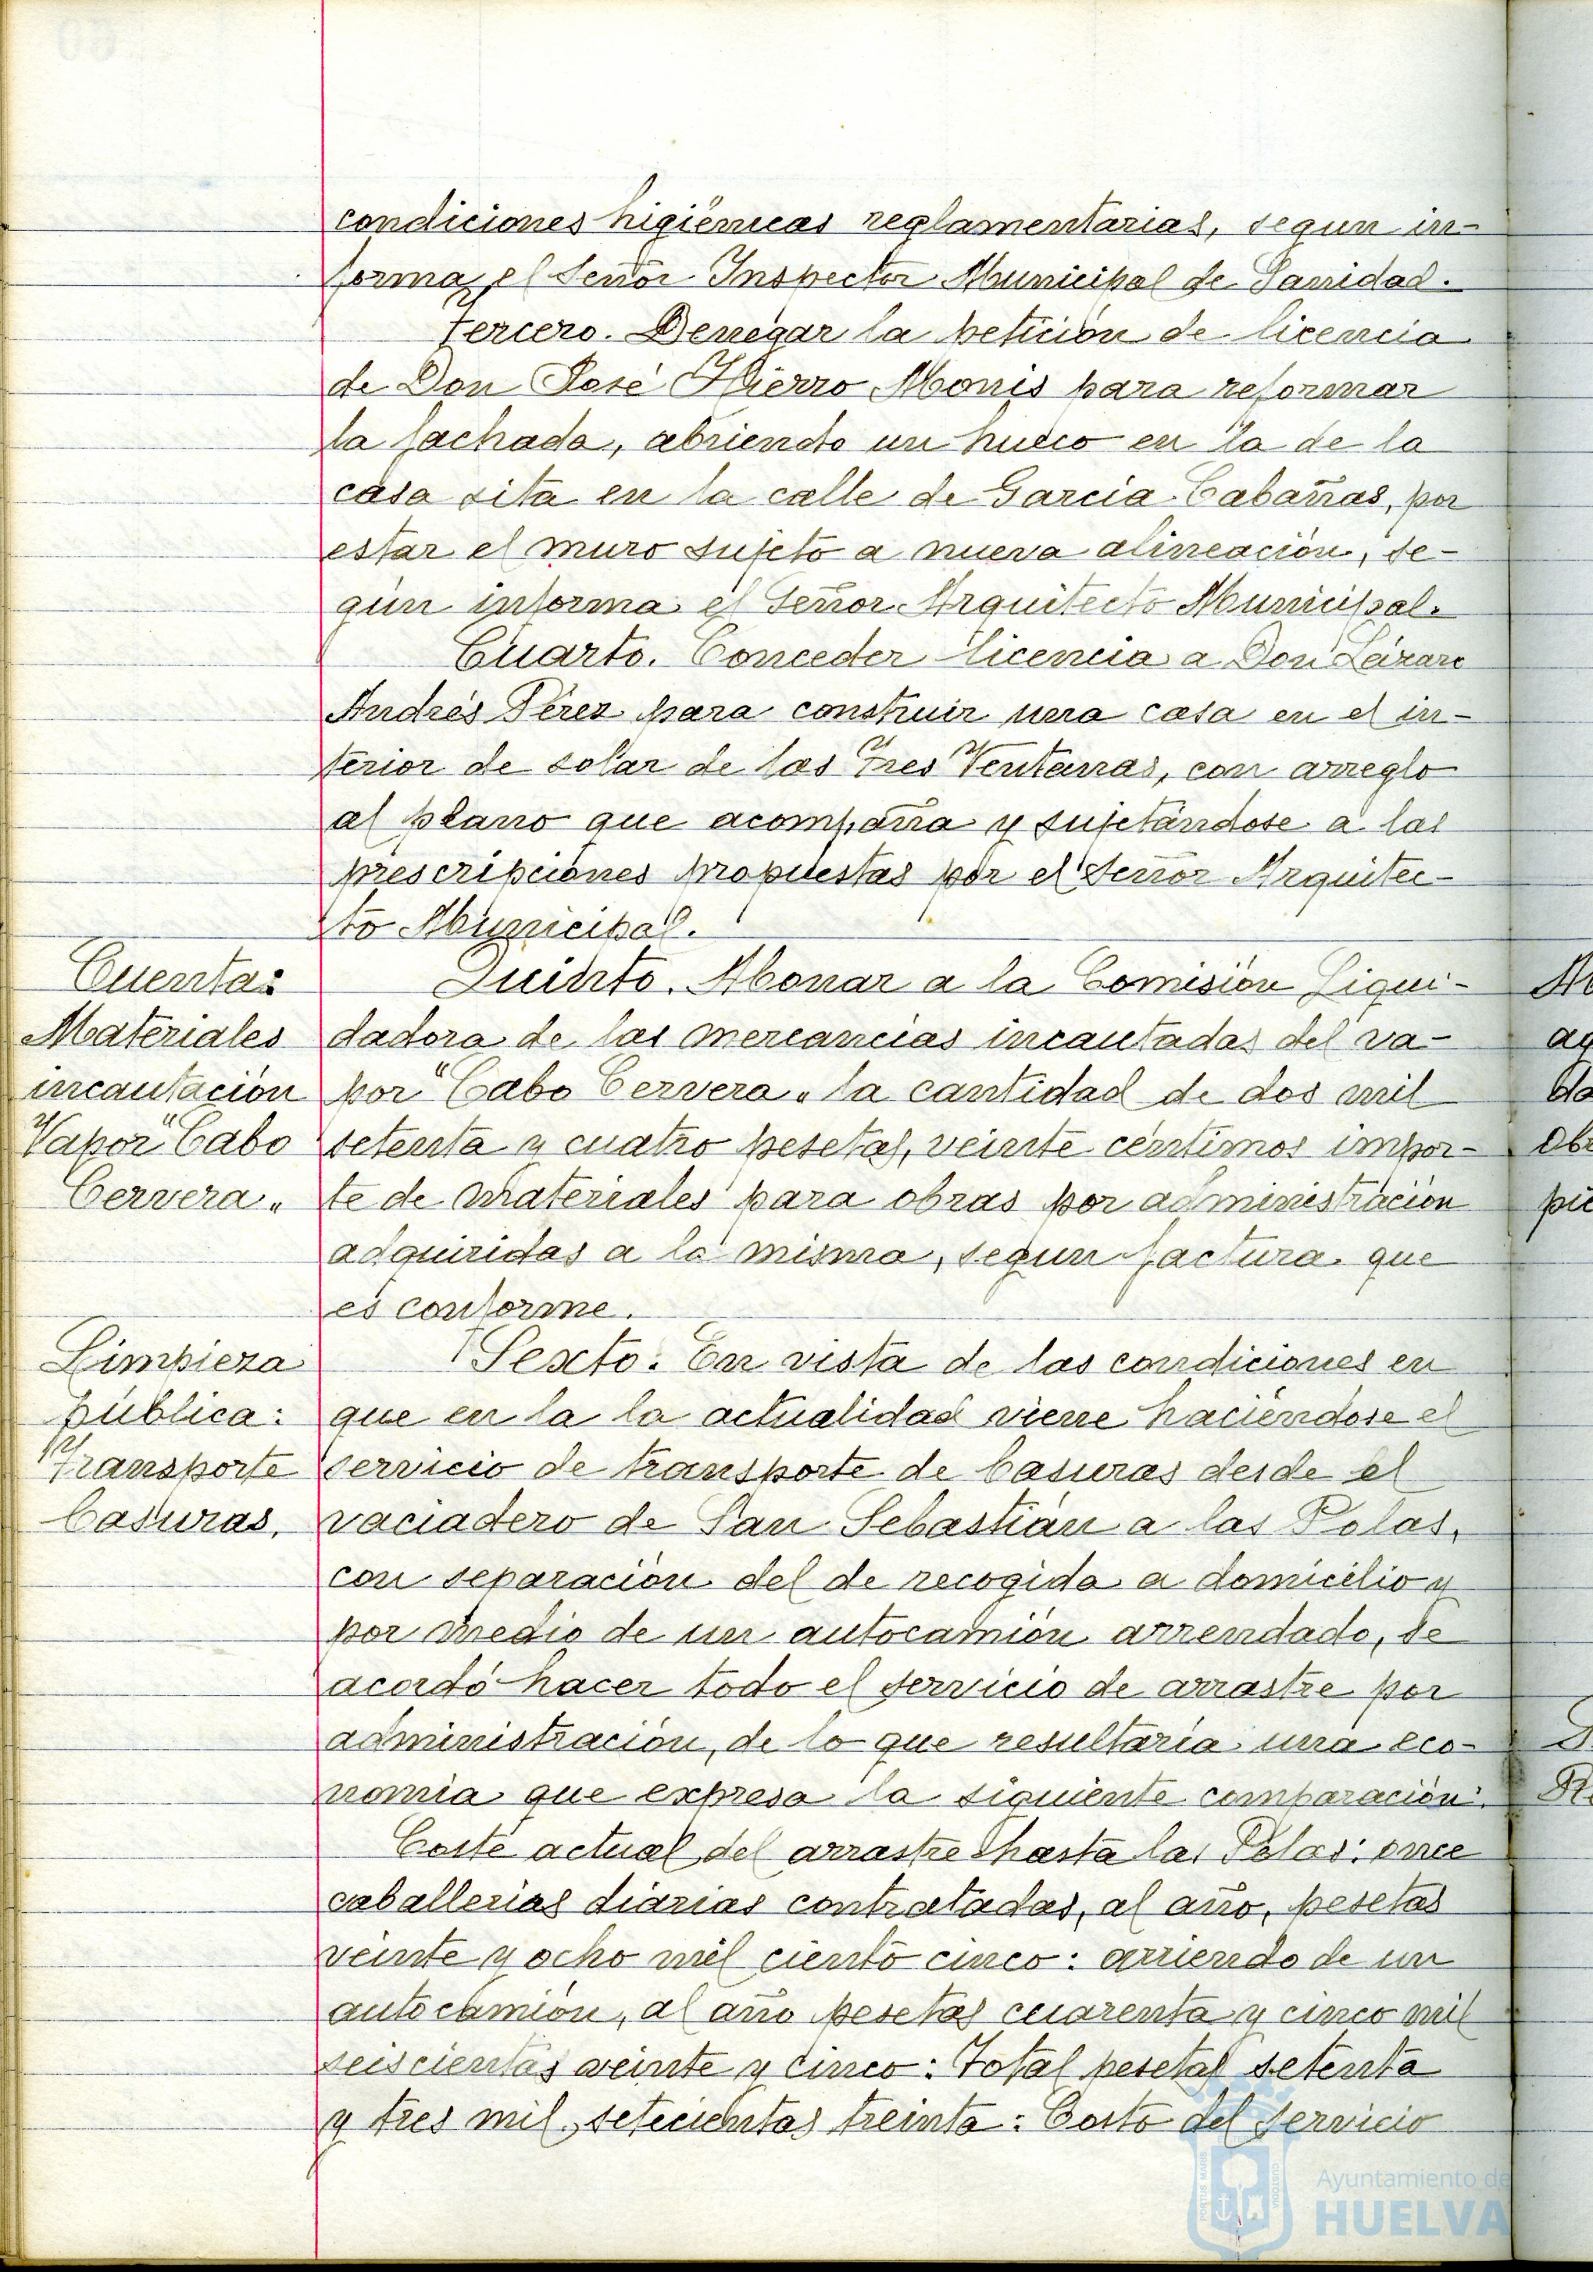 condiciones higiénicas reglamentarias, segun in-
forma el Señor Inspector Municipal de Sanidad.
Tercero. Denegar la petición de licencia
de Don José Hierro Monis para reformar
la fachada, abriendo un hueco en la de la
casa sita en la calle de Garcia Cabañas, por
estar el muro sujeto a nueva alineación, se-
gún informa el Señor Arquitecto Municipal.
Cuarto. Conceder licencia a Don Lázaro
Andrés Pérez para construir una casa en el in-
terior de solar de las Tres Ventanas, con arreglo
al plano que acompaña y sujetándose a las
prescripciones propuestas por el Señor Arquitec-
to Municipal.
Cuenta:
Materiales
incautación
Vapor "Cabo
Cervera"
Quinto. Abonar a la Comisión Liqui-
dadora de las mercancias incautadas del va-
por "Cabo Cervera" la cantidad de dos mil
setenta y cuatro pesetas, veinte céntimos impor-
te de materiales para obras por administración
adquiridas a la misma, segun factura que
es conforme.
Limpieza
pública:
Transporte
basuras.
Sexto. En vista de las condiciones en
que en la la actualidad viene haciéndose el
servicio de transporte de basuras desde el
vaciadero de San Sebastián a las Polas,
con separación del de recogida a domicilio y
por medio de un autocamión arrendado, se
acordó hacer todo el servicio de arrastre por
administración, de lo que resultaria una eco-
nomia que expresa la siguiente comparación:
Coste actual del arrastre hasta las Polas: once
caballerias diarias contratadas, al año, pesetas
veinte y ocho mil ciento cinco: arriendo de un
autocamión, al año pesetas cuarenta y cinco mil
seiscientas veinte y cinco: Total pesetas setenta
y tres mil, setecientas treinta: Costo del servicio
Ayuntamiento de
HUELVA